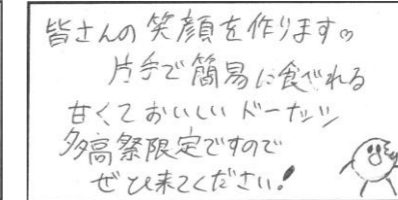 皆さんの笑顔を作ります。
片手で簡易に食べれる
甘くておいしいドーナッツ
多高祭限定ですので
ぜひ来てください!